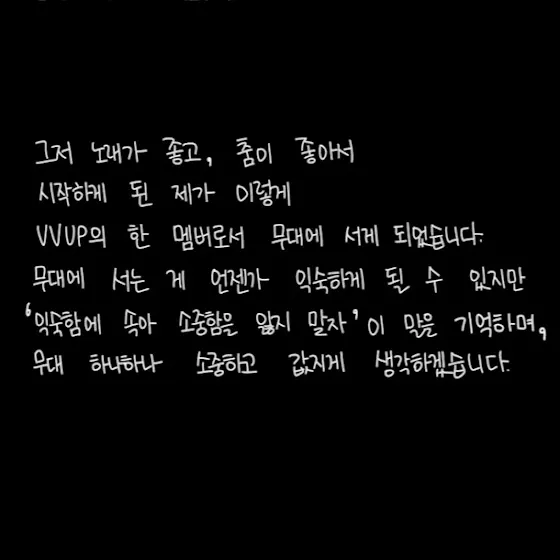 그저 노래가 좋고, 춤이 좋아서
시작하게 된 제가 이렇게
VVUP의 한 멤버로서 무대에 서게 되었습니다.
무대에 서는 게 언젠가 익숙하게 될 수 있지만
'익숙함에 속아 소중함을 잃지 말자' 이 말을 기억하며,
무대 하나하나 소중하고 값지게 생각하겠습니다.